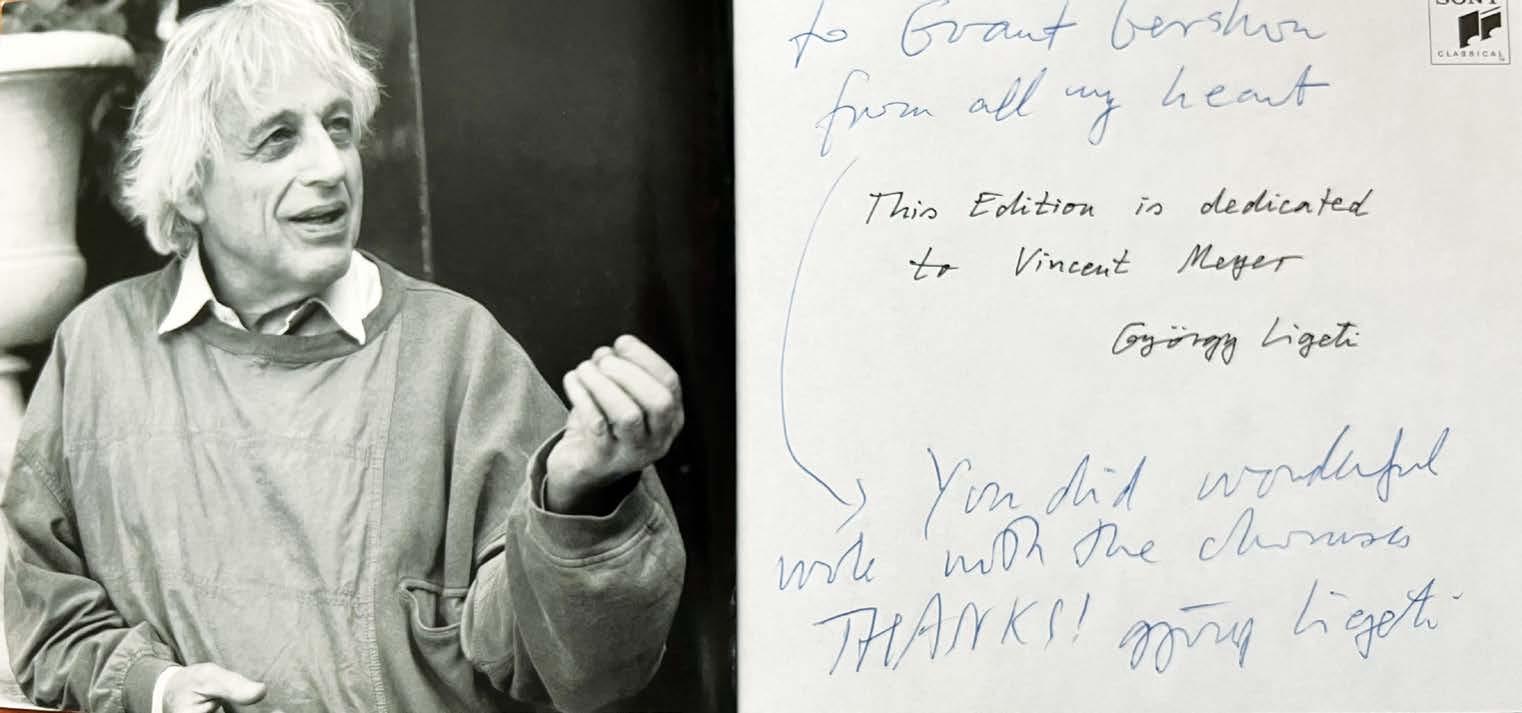 to Grant Gershon
SONY
CLASSICAL
from all my heart
This Edition is dedicated
to Vincent Meyer
György Ligeti
You did wonderful
work with the choruses
THANKS! györgy Ligeti